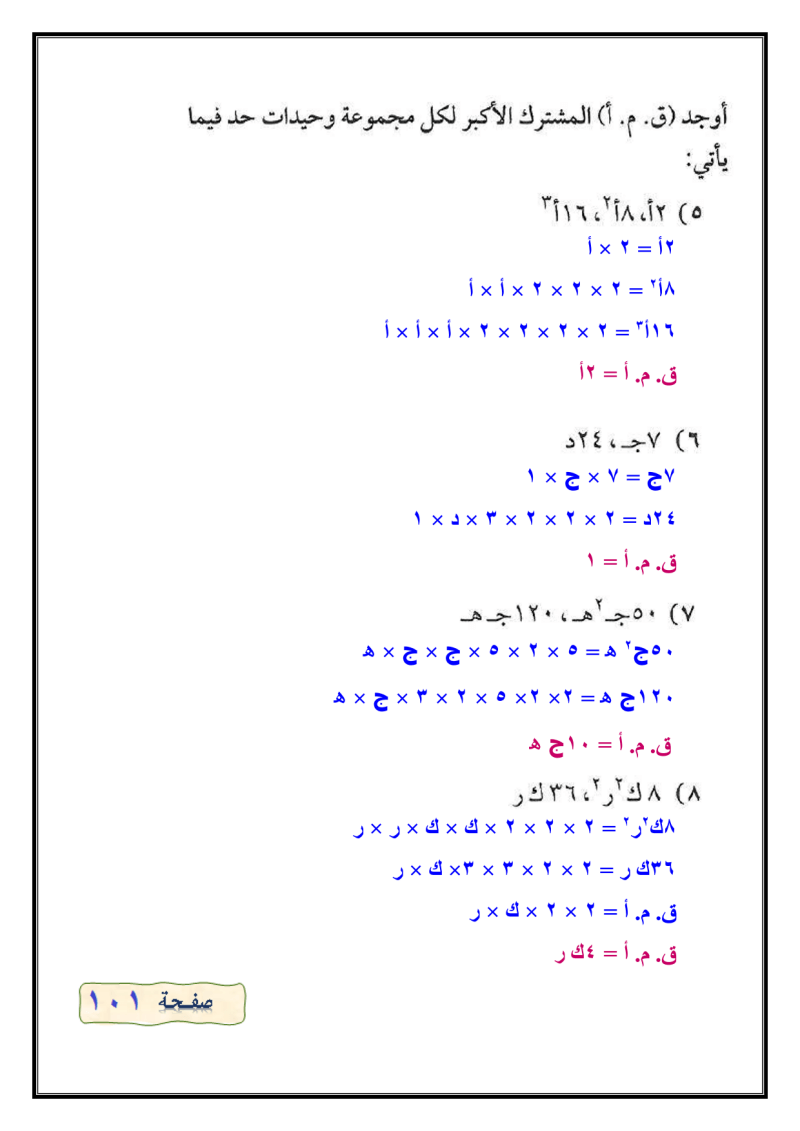 أوجد (ق. م. أ) المشترك الأكبر لكل مجموعة وحيدات حد فيما
يأتي:
٥) ٢أ، ٨أ²، ١٦أ³
٢أ = ٢ × أ
٨أ² = ٢ × ٢ × ٢ × أ × أ
١٦أ³ = ٢ × ٢ × ٢ × ٢ × أ × أ × أ
ق. م. أ = ٢أ
٦) ٧جـ، ٢٤د
٧ج = ٧ × ج × ١
٢٤د = ٢ × ٢ × ٢ × ٣ × د × ١
ق. م. أ = ١
٧) ٥٠جـ²هـ، ١٢٠جـ هـ
٥٠ج² ه = ٥ × ٢ × ٥ × ج × ج × ه
١٢٠ج ه = ٢× ٢× ٥ × ٢ × ٣ × ج × ه
ق. م. أ = ١٠ج ه
٨) ٨ ك²ر²، ٣٦ ك ر
٨ك²ر² = ٢ × ٢ × ٢ × ك × ك × ر × ر
٣٦ك ر = ٢ × ٢ × ٣ × ٣× ك × ر
ق. م. أ = ٢ × ٢ × ك × ر
ق. م. أ = ٤ك ر
صفحة ١٠١